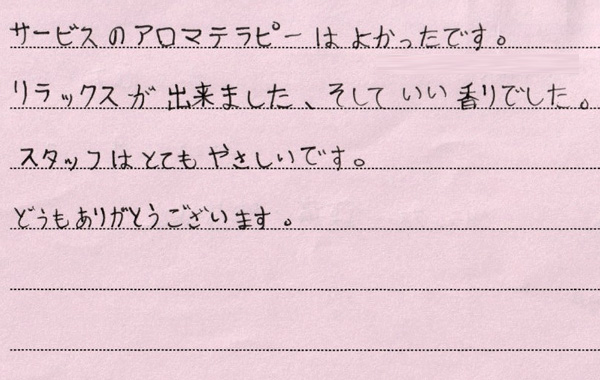 サービスのアロマテラピーはよかったです。
リラックスが出来ました、そしていい香りでした。
スタッフはとてもやさしいです。
どうもありがとうございます。